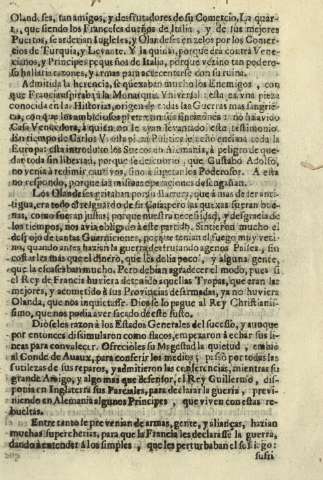 Oland. ses, tan amigos, y desfrutadores de su Comercio. La quar-
ta, que siendo los Franceses dueños de Italia, y de sus mejores
Puertos, se ardetian Ingleses, y Olandeses en zelos por los Comer-
cios de Turquia, y Levante. Y la quinta, porque era contra Vene-
cianos, y Principes pequeños de Italia, porque vezino tan podero-
so hallaria razones, y armas para acrecentarse con su ruina.
Admitida la herencia, se quexaban mucho los Enemigos, con
que Francia aspiraba à la Monarquia Vniversal: esta es vna pieza
conocida en las Historias, origen de todas las Guerras mas sangriẽ-
tas, con que los ambiciosos pretextan sus y no ha avido
Casa Vencedora, à quien no le ayan levantado este testimonio.
En tiempo de Carlos V. esta encendia toda la
Europa: esta introduxo los Suecos en Alemania, à peligro de que-
dar toda sin libertad, porque se descubriò, que Gustabo Adolfo,
no venia à redimir cautivos, sino à sugetar los Poderosos. A esta
no respondo, porque las mismas operaciones desengañan.
Los Olandeses gritaban por su Barrera, que à mas de ser anti-
tigua, era todo el resguardo de su Casa; pero las quexas fueran bue-
nas, como fueran justas; porque nuestra necessidad, y desgracia de
los tiempos, nos avia obligado à este partido. Sintieron mucho el
despojo de tantas Guarniciones, porque tenian el fuego muy vezi-
no, quando antes hazian la guerra desfrutando agenos Paises, sin
costarles mas que el dinero, que les dolia poco, y alguna gente,
que la escaseaban mucho. Pero debian agradecer el modo, pues si
el Rey de Francia huviera detenido aquellas Tropas, que eran las
mejores, y acometido à sus Provincias desarmadas, ya no huviera
Olanda, que nos inquietasse. Dios se lo pague al Rey Christianis-
simo, que nos podia aver sacado de este susto.
Dioseles razon à los Estados Generales del sucesso, y aunque
por entonces dissimularon como flacos, empezaron à echar sus li-
neas para convalecer. Ofrecioles su Magestad la quietud, embiò
al Conde de Auaux, para conferir los medios; passò por todas las
sutilezas de sus reparos, y admitieron las conferencias, mientras su
grande Amigo, y algo mas que defensor, el Rey Guillermo, dis-
ponia en Inglaterra sus Parciales, para declarar la guerra, previ-
niendo en Alemania algunos Principes, que viven con estas re-
bueltas.
Entre tanto le prevenian de armas, gente, y alianças, hazian
muchas supercherias, para que la Francia les declarasse la guerra,
dando à entender à los simples, que les perturbaban el sosiego:
susti